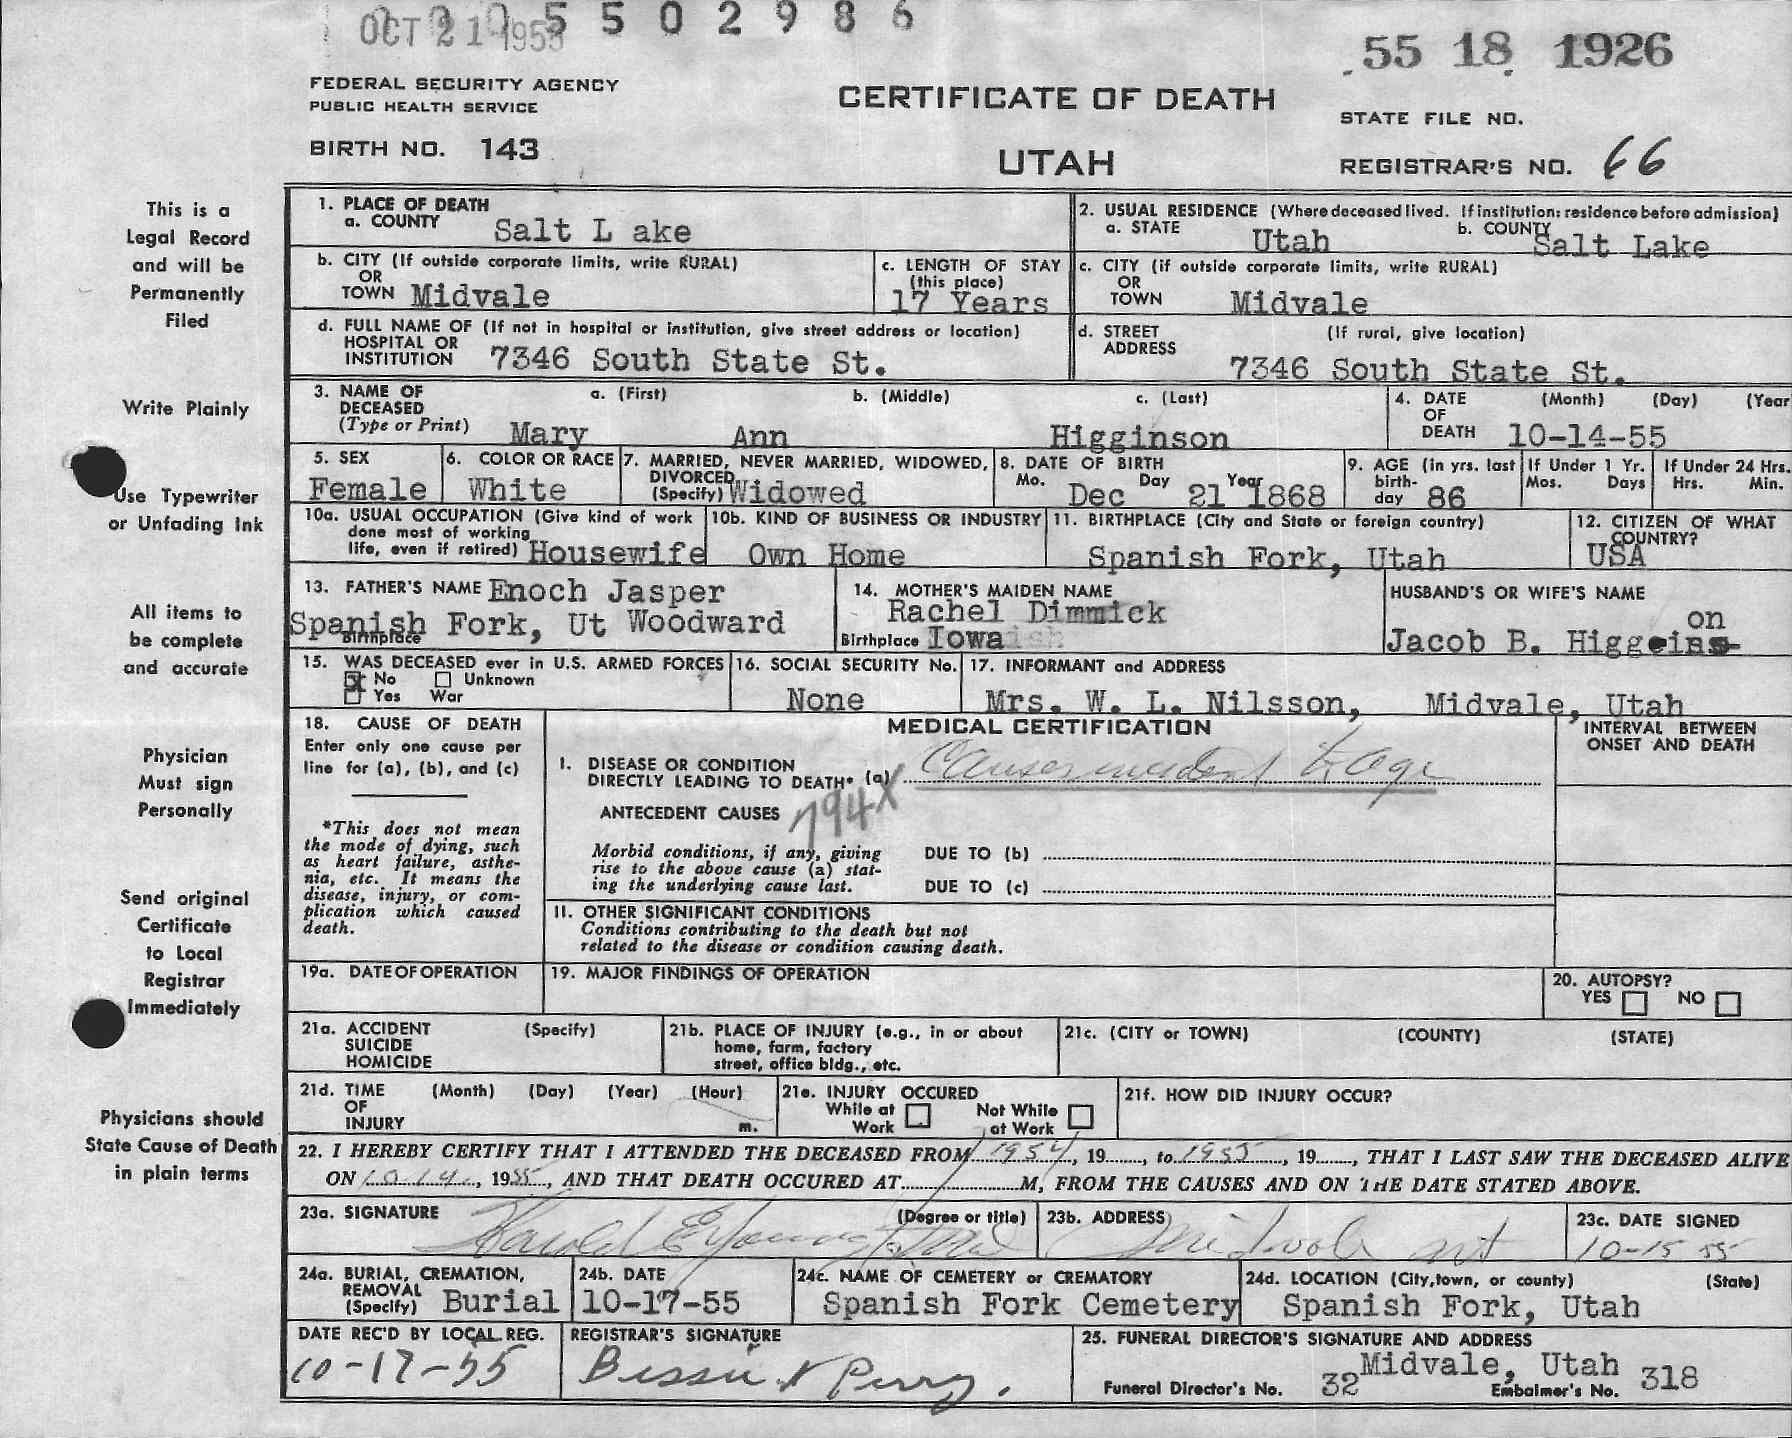 OCT 21 1955 5 5 0 2 9 8 6
55 18 1926
FEDERAL SECURITY AGENCY
PUBLIC HEALTH SERVICE
CERTIFICATE OF DEATH
STATE FILE NO.
BIRTH NO. 143
UTAH
REGISTRAR'S NO. 66
This is a
Legal Record
and will be
Permanently
Filed
Write Plainly
Use Typewriter
or Unfading Ink
All items to
be complete
and accurate
Physician
Must sign
Personally
Send original
Certificate
to Local
Registrar
Immediately
Physicians should
State Cause of Death
in plain terms
1. PLACE OF DEATH
a. COUNTY Salt L ake
2. USUAL RESIDENCE (Where deceased lived. If institution: residence before admission)
a. STATE Utah b. COUNTY Salt Lake
b. CITY (If outside corporate limits, write RURAL)
OR
TOWN Midvale
c. LENGTH OF STAY
(this place)
17 Years
c. CITY (if outside corporate limits, write RURAL)
OR
TOWN Midvale
d. FULL NAME OF (If not in hospital or institution, give street address or location)
HOSPITAL OR
INSTITUTION 7346 South State St.
d. STREET (If rural, give location)
ADDRESS
7346 South State St.
3. NAME OF a. (First) b. (Middle) c. (Last)
DECEASED
(Type or Print) Mary Ann Higginson
4. DATE (Month) (Day) (Year
OF
DEATH 10-14-55
5. SEX
Female
6. COLOR OR RACE
White
7. MARRIED, NEVER MARRIED, WIDOWED,
DIVORCED
(Specify) Widowed
8. DATE OF BIRTH
Mo. Day Year
Dec 21 1868
9. AGE (in yrs. last
birth-
day 86
If Under 1 Yr.
Mos. Days
If Under 24 Hrs.
Hrs. Min.
10a. USUAL OCCUPATION (Give kind of work
done most of working
life, even if retired) Housewife
10b. KIND OF BUSINESS OR INDUSTRY
Own Home
11. BIRTHPLACE (City and State or foreign country)
Spanish Fork, Utah
12. CITIZEN OF WHAT
COUNTRY?
USA
13. FATHER'S NAME Enoch Jasper
Spanish Fork, Ut Woodward
Birthplace
14. MOTHER'S MAIDEN NAME
Rachel Dimmick
Birthplace Iowa
HUSBAND'S OR WIFE'S NAME
on
Jacob B. Higgeins
15. WAS DECEASED ever in U.S. ARMED FORCES
x No Unknown
Yes War
16. SOCIAL SECURITY No.
None
17. INFORMANT and ADDRESS
Mrs. W. L. Nilsson, Midvale, Utah
18. CAUSE OF DEATH
Enter only one cause per
line for (a), (b), and (c)
*This does not mean
the mode of dying, such
as heart failure, asthe-
nia, etc. It means the
disease, injury, or com-
plication which caused
death.
MEDICAL CERTIFICATION
INTERVAL BETWEEN
ONSET AND DEATH
I. DISEASE OR CONDITION
DIRECTLY LEADING TO DEATH* (a) Causes incident to age
ANTECEDENT CAUSES 794X
Morbid conditions, if any, giving
rise to the above cause (a) stat-
ing the underlying cause last.
DUE TO (b)
DUE TO (c)
II. OTHER SIGNIFICANT CONDITIONS
Conditions contributing to the death but not
related to the disease or condition causing death.
19a. DATE OF OPERATION
19. MAJOR FINDINGS OF OPERATION
20. AUTOPSY?
YES NO
21a. ACCIDENT (Specify)
SUICIDE
HOMICIDE
21b. PLACE OF INJURY (e.g., in or about
home, farm, factory
street, office bldg., etc.
21c. (CITY or TOWN) (COUNTY) (STATE)
21d. TIME (Month) (Day) (Year) (Hour)
OF
INJURY m.
21e. INJURY OCCURED
While at Work Not While at Work
21f. HOW DID INJURY OCCUR?
22. I HEREBY CERTIFY THAT I ATTENDED THE DECEASED FROM 1954, 19, to 1955, 19, THAT I LAST SAW THE DECEASED ALIVE
ON 10 14, 1955, AND THAT DEATH OCCURED AT M, FROM THE CAUSES AND ON THE DATE STATED ABOVE.
23a. SIGNATURE (Degree or title)
Harold E Young
23b. ADDRESS
Midvale
23c. DATE SIGNED
10-15 55
24a. BURIAL, CREMATION,
REMOVAL
(Specify) Burial
24b. DATE
10-17-55
24c. NAME OF CEMETERY or CREMATORY
Spanish Fork Cemetery
24d. LOCATION (City, town, or county) (State)
Spanish Fork, Utah
DATE REC'D BY LOCAL REG.
10-17-55
REGISTRAR'S SIGNATURE
Bessie N Perry.
25. FUNERAL DIRECTOR'S SIGNATURE AND ADDRESS
Midvale, Utah
Funeral Director's No. 32 Embalmer's No. 318